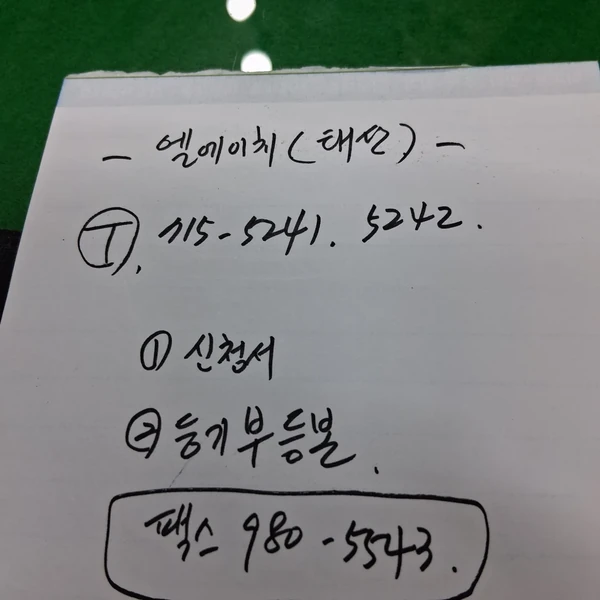 - 엘에이치(태선) -
Ⓣ. 715-5241. 5242.
① 신청서
② 등기부등본.
팩스 980-5543.